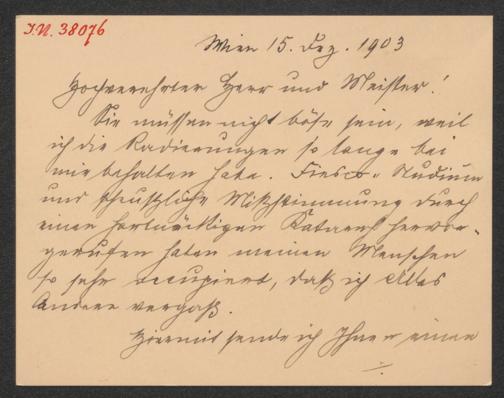 I.N. 38076
Wien 15. Dez. 1903
Hochverehrter Herr und Meister!
Sie müssen nicht böse sein, weil
ich die Radierungen so lange bei
mir behalten habe. Fiesco-Studium
und scheußliche Mißstimmung durch
einen hartnäckigen Katarrh hervor-
gerufen haben meinen Menschen
so sehr occupiert, daß ich Alles
Andere vergaß.
Hiermit sende ich Ihnen einen